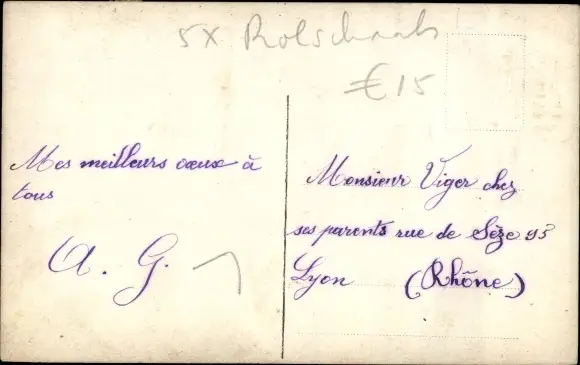 5x Rolschaats
€ 15
Mes meilleurs vœux à
tous
A. G.
Monsieur Viger chez
ses parents rue de Sèze 95
Lyon (Rhône)